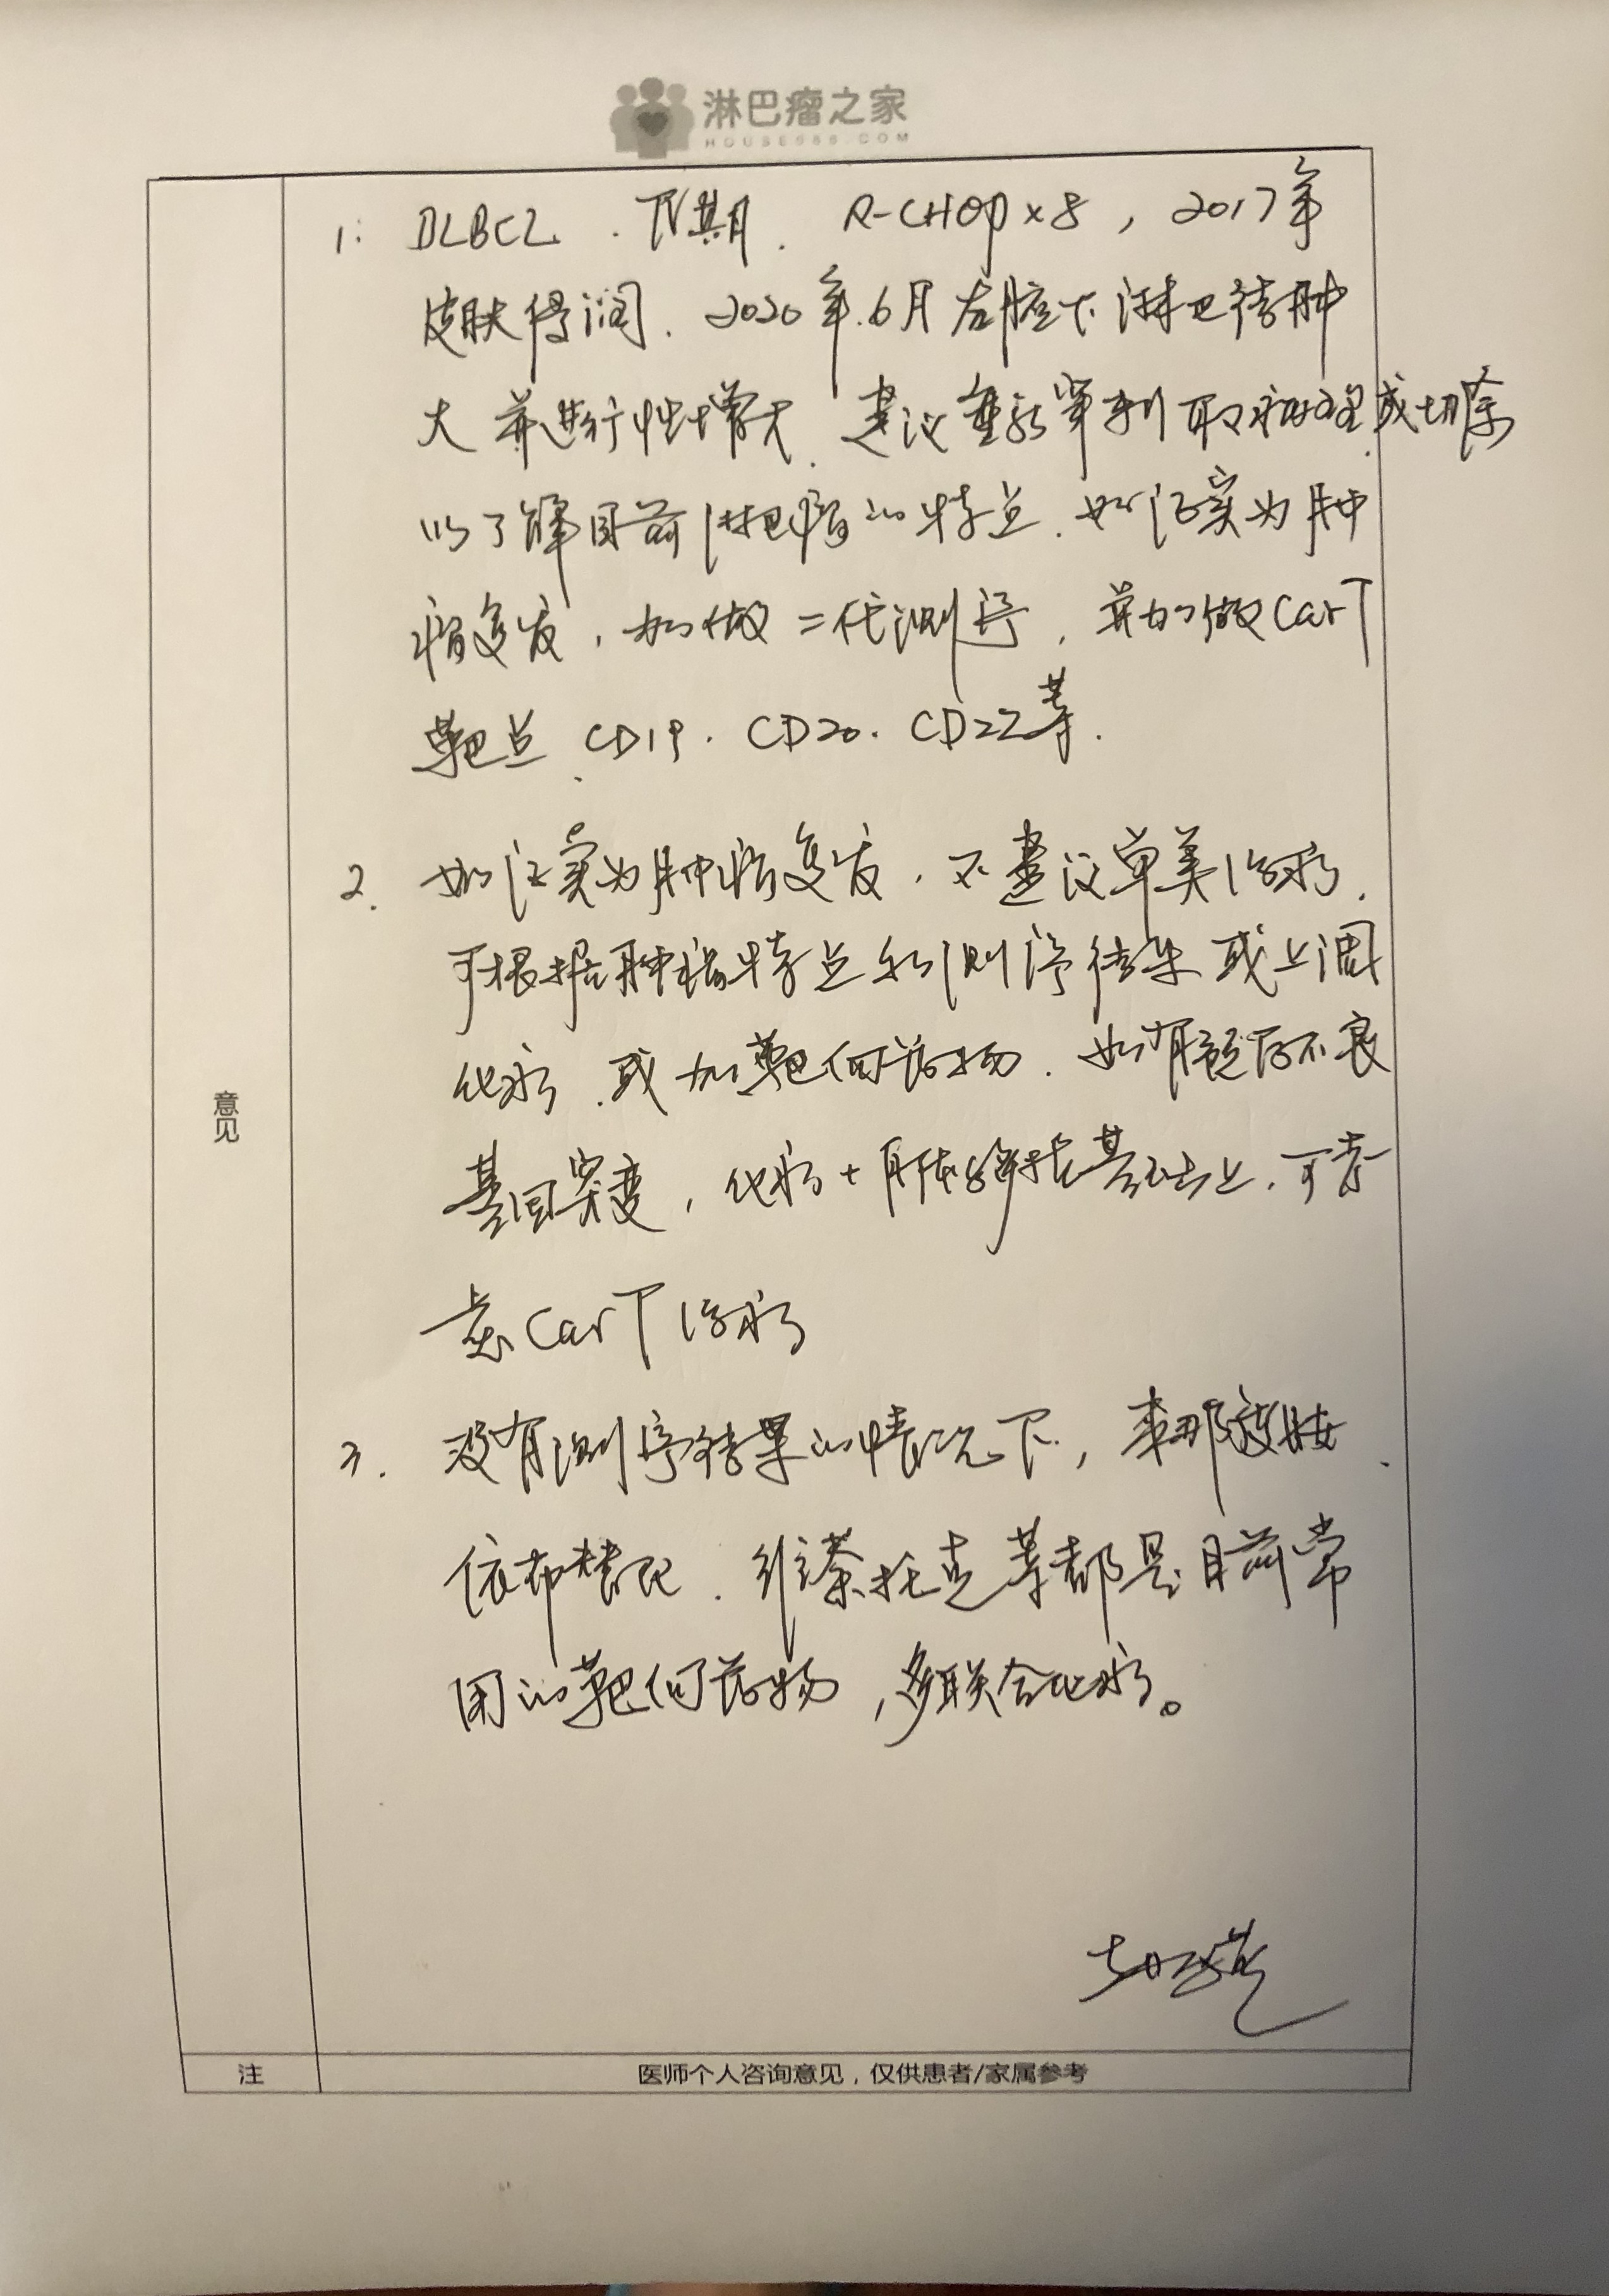 淋巴瘤之家
HOUSE086.COM
1: DLBCL. IV期. R-CHOP×8, 2017年
皮肤侵润. 2020年.6月左腋下淋巴结肿
大并进行性增大. 建议重新穿刺取病理.或切除
以了解目前淋巴瘤的特点. 如证实为肿
瘤复发, 加做二代测序, 并加做CarT
靶点.CD19. CD20. CD22等.
2. 如证实为肿瘤复发, 不建议单美治疗.
可根据肿瘤特点和测序结果或上调
化疗.或加靶向药物. 如有预后不良
基因突变, 化疗+自体移植基础上.可考
虑CarT治疗
3. 没有测序结果的情况下, 来那度胺.
依布替尼. 维奈托克等都是目前常
用的靶向药物,多联合化疗。
意见
注
医师个人咨询意见，仅供患者/家属参考